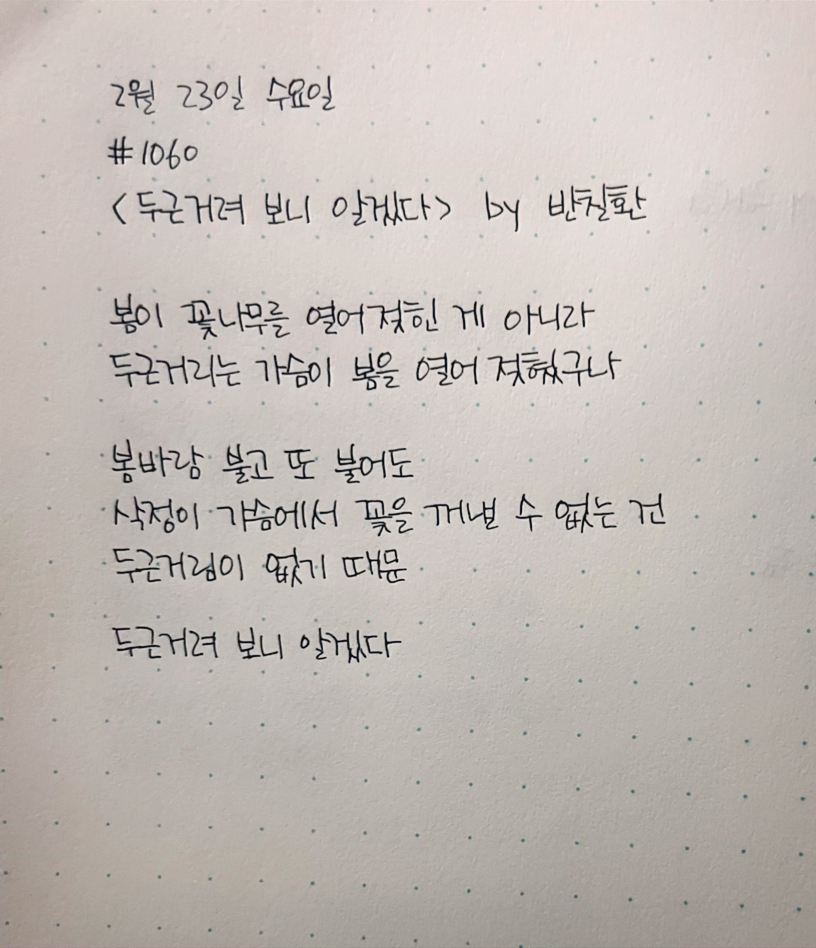 2월 23일 수요일
#1060
<두근거려 보니 알겠다> by 반칠환
봄이 꽃나무를 열어젖힌 게 아니라
두근거리는 가슴이 봄을 열어 젖혔구나
봄바람 불고 또 불어도
삭정이 가슴에서 꽃을 꺼낼 수 없는 건
두근거림이 없기 때문
두근거려 보니 알겠다